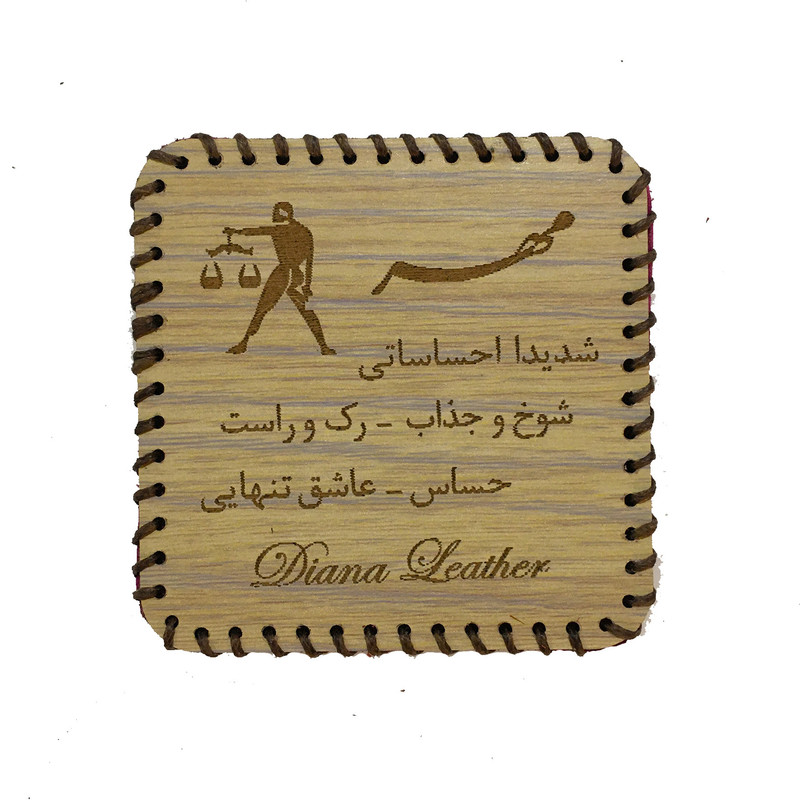 مهر
شدیدا احساساتی
شوخ و جذاب - رک و راست
حساس - عاشق تنهایی
Diana Leather